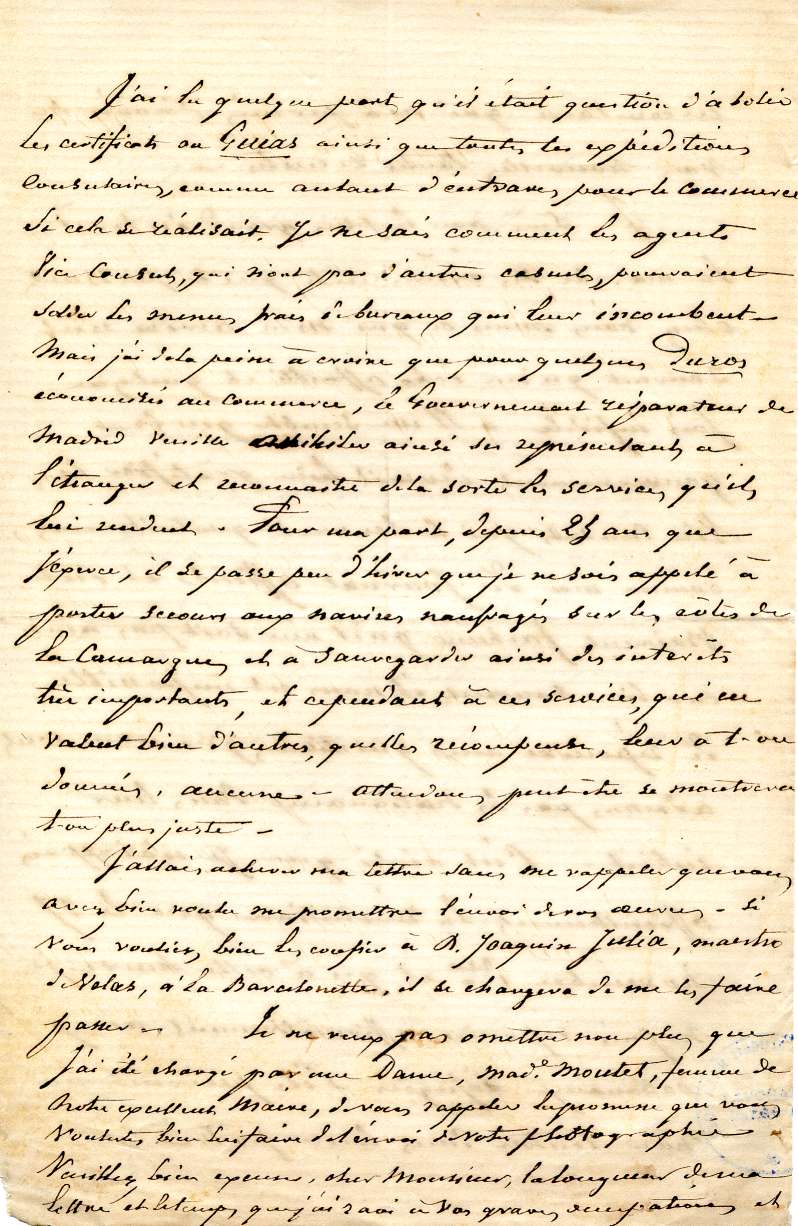 J'ai lu quelque part qu'il était question d'abolir
les certificats ou Guias ainsi que toutes les expéditions
Consulaires, comme autant d'entraves pour le commerce
Si cela se réalisait, Je ne sais comment les agents
Vice Consuls, qui n'ont pas d'autres casuels, pourraient
solder les menus frais de bureaux qui leur incombent -
Mais j'ai de la peine à croire que pour quelques Duros
économisés au commerce, le Gouvernement réparateur de
Madrid veuille annihiler ainsi ses représentants à
l'étranger et reconnaitre de la sorte les services qu'ils
lui rendent. Pour ma part, depuis 25 ans que
j'éxerce, il se passe peu d'hiver que je ne sois appelé à
porter secours aux navires naufragés sur les côtes de
la Camargue, et à sauvegarder ainsi des intérêts
très importants, et cependant à ces services, qui en
valent bien d'autres, quelles récompenses, leur a t-on
données, aucune - attendons, peut être se montrera
t-on plus juste -
J'allais achever ma lettre sans me rappeler que vous
avez bien voulu me promettre l'envoi de vos œuvres - si
vous vouliez bien les confier à D. Joaquin Julia, maestro
de Velas, à la Barcelonette, il se chargera de me les faire
passer - Je ne veux pas omettre non plus que
j'ai été chargé par une Dame, mad.e Moutet, femme de
notre excellent Maire, de vous rappeler la promesse que vous
voulutes bien lui faire de l'envoi de votre photographie -
Veuillez bien excuser, cher Monsieur, la longueur de ma
lettre et le temps que j'ai ravi à vos graves occupations et